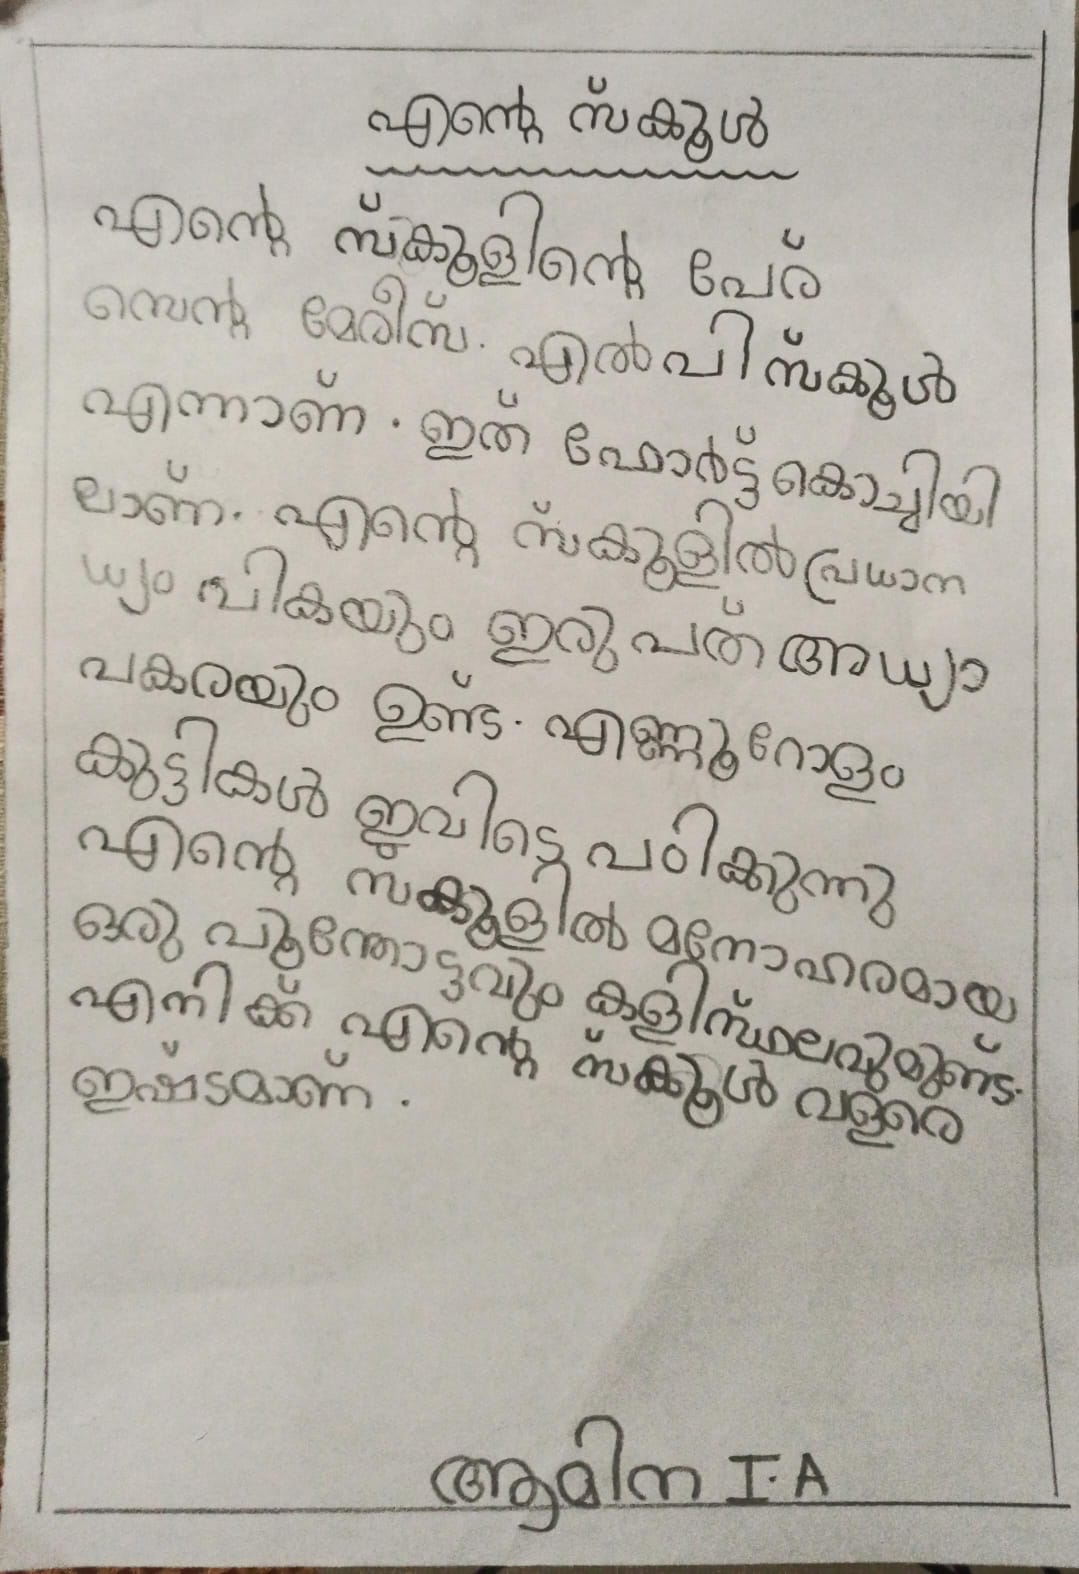 എന്റെ സ്കൂൾ
എന്റെ സ്കൂളിന്റെ പേര്
സെന്റ മേരീസ്. എൽ പി സ്കൂൾ
എന്നാണ്. ഇത് ഫോർട്ട് കൊച്ചിയി
ലാണ്. എന്റെ സ്കൂളിൽ പ്രധാന
ധ്യം പികയും ഇരുപത് അധ്യാ
പകരയും ഉണ്ട്. എണ്ണൂറോളം
കുട്ടികൾ ഇവിട്ടെ പഠിക്കുന്നു
എന്റെ സ്ക്കൂളിൽ മനോഹരമായ
ഒരു പൂന്തോട്ടവും കളിസ്ഥലവുമുണ്ട്.
എനിക്ക് എന്റെ സ്ക്കൂൾ വളരെ
ഇഷ്ടമാണ് .
ആമിന I.A